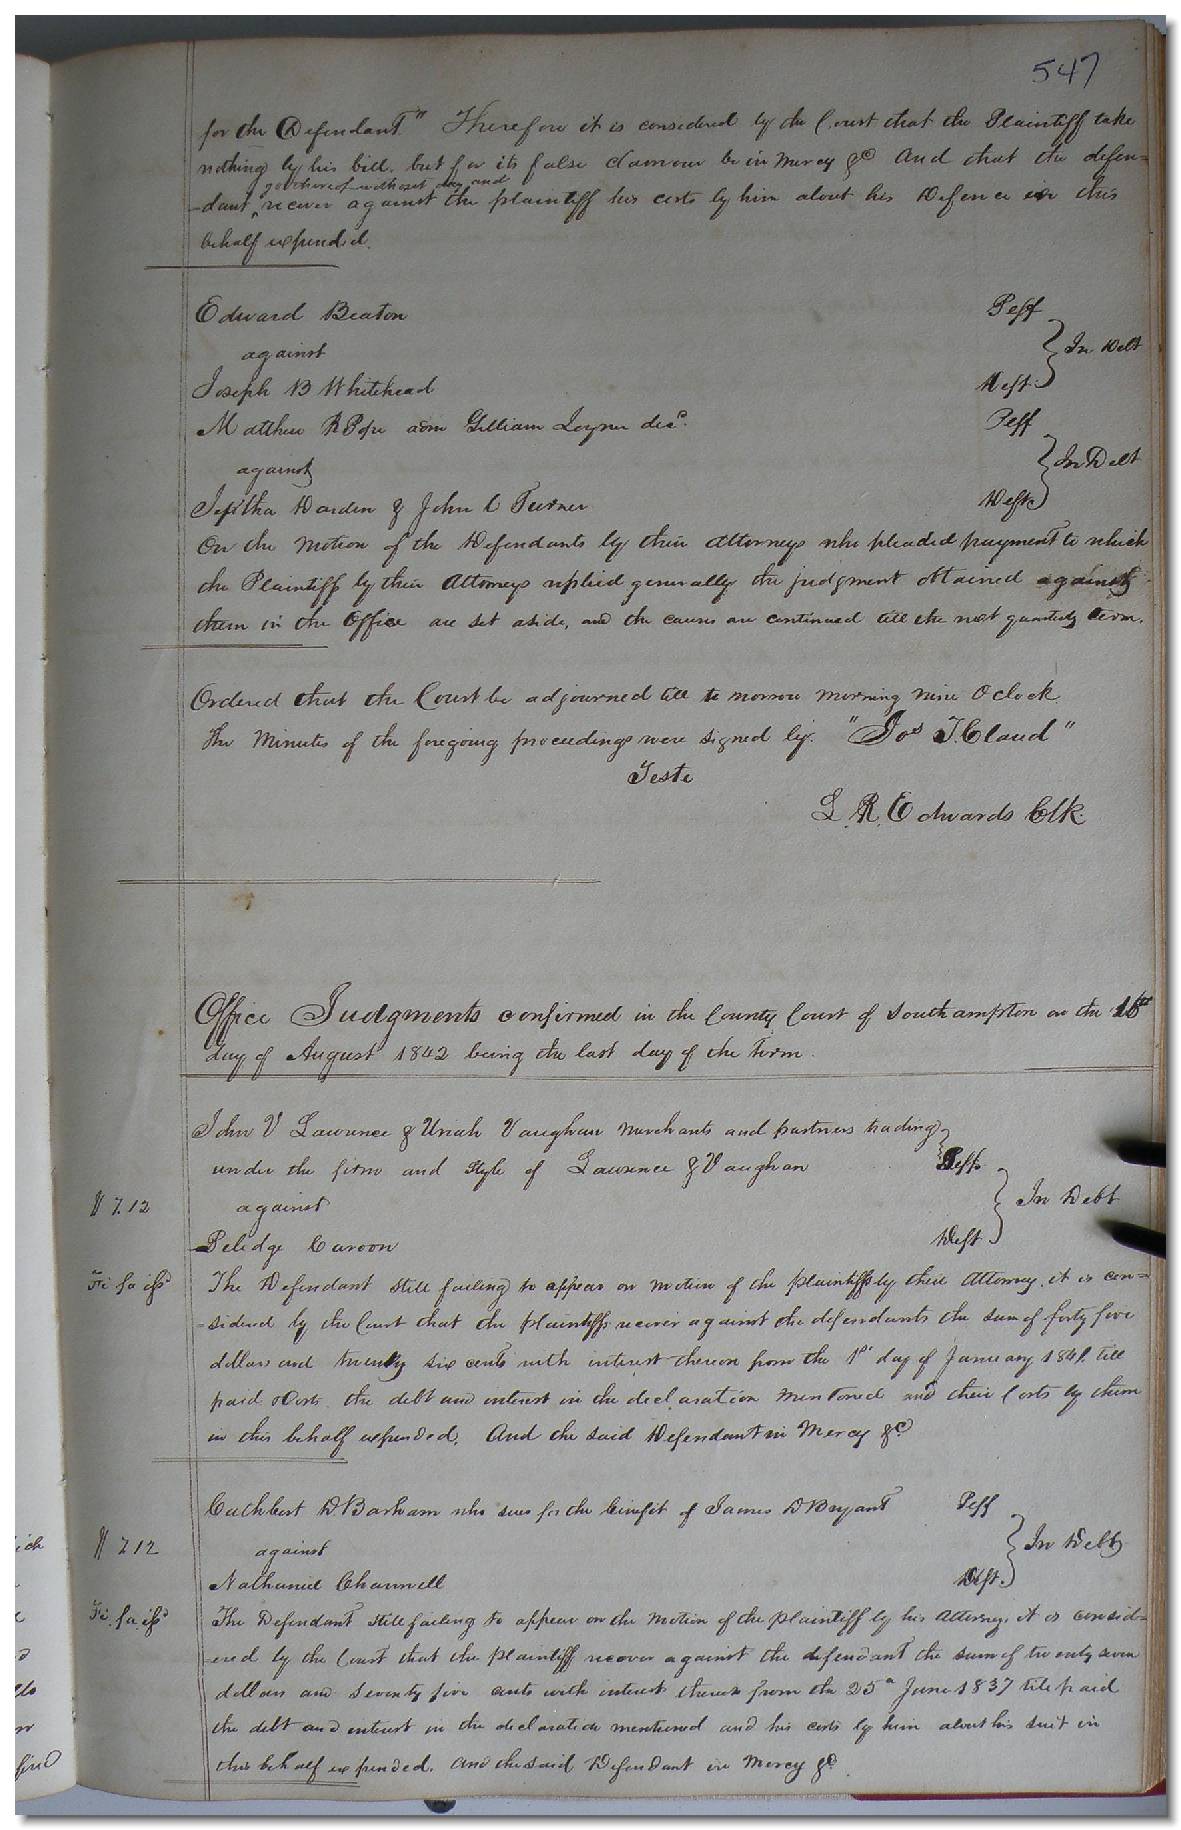 547
for the Defendant" Therefore it is considered by the Court that the Plaintiff take
nothing by his bill, but for its false clamour be in mercy &c And that the defen=
go thereof without day and
-dant, recover against the plaintiff his costs by him about his Defence in this
behalf expended.
Edward Beaton Peff
against } In Debt
Joseph B Whitehead Deft.
Matthew R Pope adm Gilliam Joyner decd. Peff
against } In Debt
Jeptha Darden & John D Turner Defts
On the motion of the Defendants by their attorneys who pleaded payment to which
the Plaintiff by their Attorneys replied generally the judgment obtained against
them in the Office are set aside, and the causes are continued till the next quarterly term.
Ordered that the Court be adjourned till to morrow morning nine O clock
The Minutes of the foregoing proceedings were signed by. "Jos T. Claud"
Teste
L. R. Edwards Clk.
Office Judgments confirmed in the County Court of Southampton on the 16th
day of August 1842 being the last day of the term.
John V Lawrence & Uriah Vaughan merchants and partners trading
under the firm and style of Lawrence & Vaughan Peffs
$ 7.12 against } In Debt
Pelidge Carson Deft
Fi fa issd The Defendant still faileing to appear on motion of the plaintiffs by their Attorney, it is con=
-sidered by the Court that the plaintiffs recover against the defendants the sum of forty five
dollars and twenty six cents with interest thereon from the 1st day of January 1841. till
paid the debt and interest in the declaration mentioned and their Costs by them
in this behalf expended. And the said Defendant in Mercy &c
Cuthbert D. Barham who sues for the benefit of James D Bryant Peff
$ 7.12 against } In Debt
Nathaniel Channell Deft.
Fi. fa issd The Defendant still faileing to appear on the motion of the plaintiff by his Attorney, it is consid=
-ered by the Court that the plaintiff recover against the defendant the sum of twenty seven
dollars and seventy five cents with interest thereon from the 25th June 1837 till paid
the debt and interest in the declaration mentioned and his costs by him about his suit in
this behalf expended. And the said Defendant in Mercy &c.